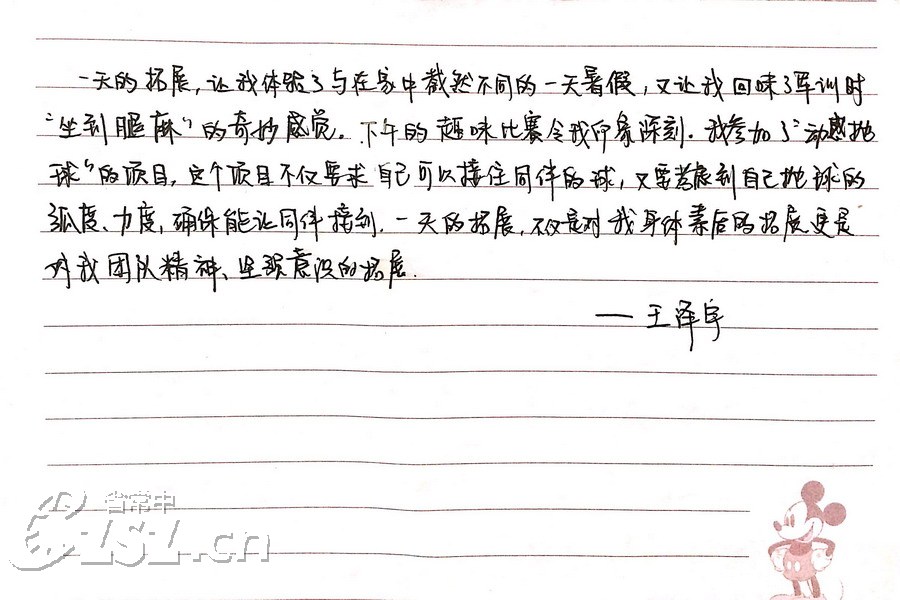 一天的拓展，让我体验了与在家中截然不同的一天暑假，又让我回味了军训时
“坐到腿麻”的奇妙感觉。下午的趣味比赛令我印象深刻。我参加了“动感抛
球”的项目，这个项目不仅要求自己可以接住同伴的球，又要考虑到自己抛球的
弧度、力度，确保能让同伴接到。一天的拓展，不仅是对我身体素质的拓展更是
对我团队精神、坚韧意识的拓展.
——王泽宇
省常中
CZSZ.cn